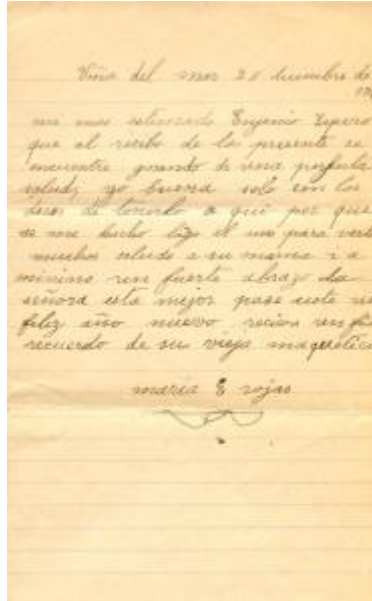 Viña del mar 20 diciembre de
mi mas estimado Eugenio Espero
que al recibo de la presente se
encuentre gosando de una perfecta
salud, yo buena solo con los
deceos de tenerlo a qui por que
se me hecho largo el mes para verlo
muchos saludo a su mama i a
minino un fuerte abrazo la
señora está mejor pase usté un
feliz año nuevo reciva un
recuerdo de su vieja
maria E rojas